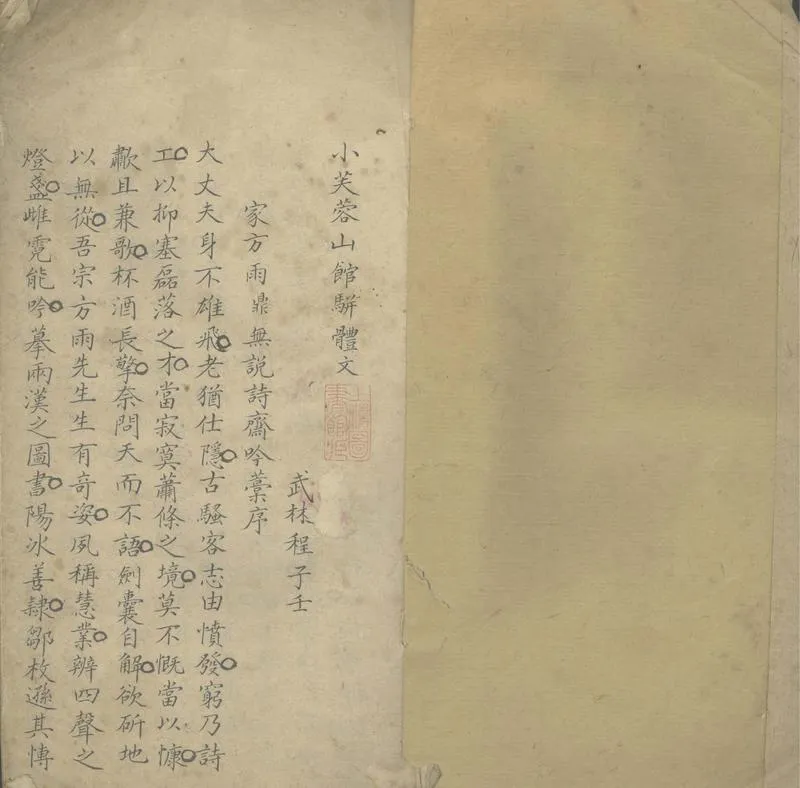 小芙蓉山館駢體文
武林程子壬
家方雨鼎無説詩齋吟藁序
大丈夫身不雄飛老猶仕隱古騷客志由憤發窮乃詩
工以抑塞磊落之才當寂寞蕭條之境莫不慨當以慷
歗且兼歌杯酒長擎奈問天而不語劍囊自解欲斫地
以無從吾宗方雨先生生有奇姿夙稱慧業辨四聲之
燈盞雌霓能吟摹兩漢之圖書陽冰善隸鄒枚遜其博